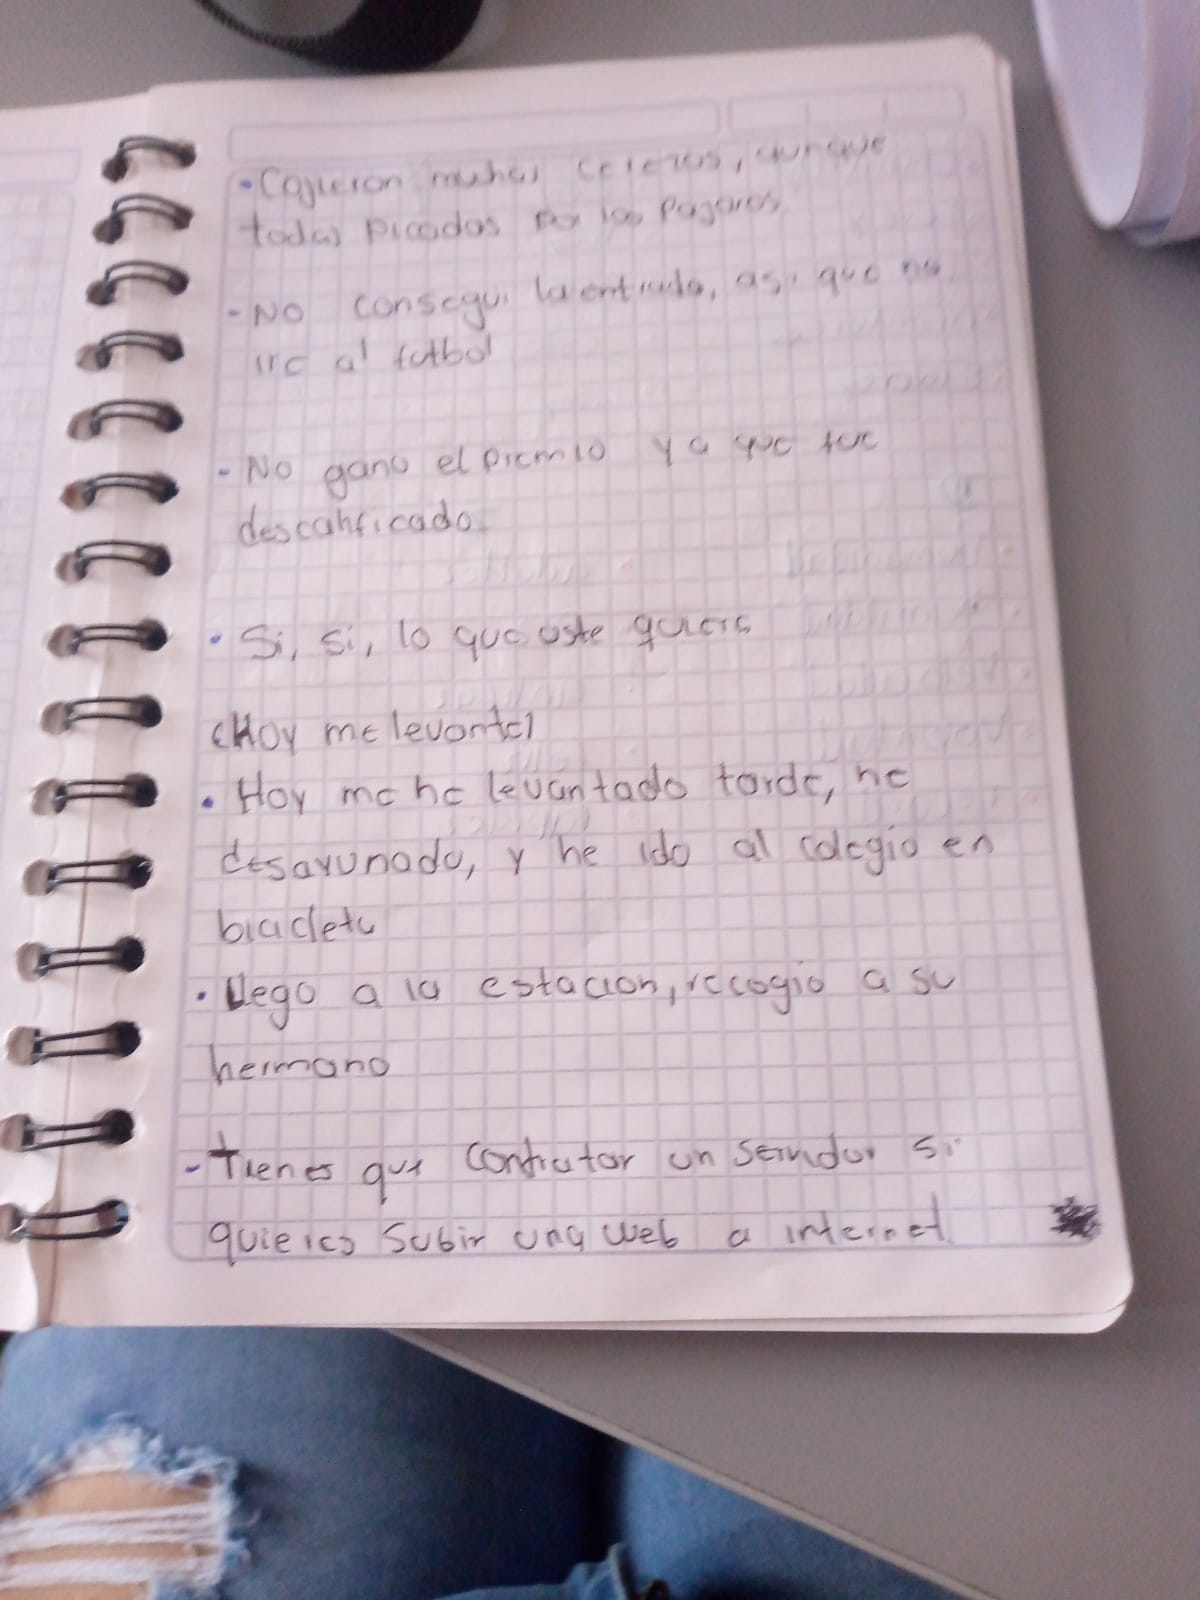 • Cojieron muchas cerezas, aunque
todas picadas por los pajaros.
- No consegui la entrada, asi que no
ire al futbol
- No gano el premio ya que fue
descalificado.
• Si, si, lo que uste quiera
(Hoy me levante)
• Hoy me he levantado tarde, he
desayunado, y he ido al colegio en
bicicleta
• Llego a la estacion, recogio a su
hermano
- Tienes que contratar un servidor si
quieres subir una web a internet.